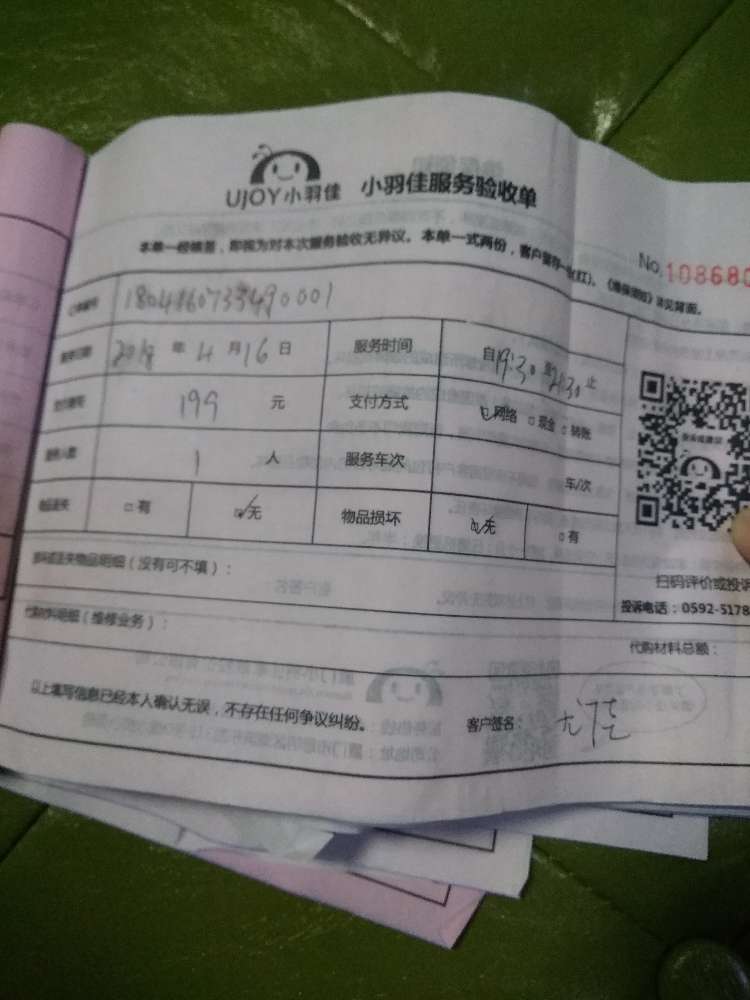 UJOY小羽佳 小羽佳服务验收单
本单一经填写，即视为对本次服务验收无异议。本单一式两份，客户留存一(红)。《维保须知》详见背面。
No.108680
订单编号
服务日期 2018 年 4 月 16 日 服务时间 自19:30 至21:30 止
支付费用 199 元 支付方式 网络 现金 转账
服务人数 1 人 服务车次 车/次
物品遗失 有 无 物品损坏 无 有
扫码评价或投诉
投诉电话：0592-5178
损坏或丢失物品明细（没有可不填）：
代购材料明细（维修业务）： 代购材料总额：
以上填写信息已经本人确认无误，不存在任何争议纠纷。 客户签名：